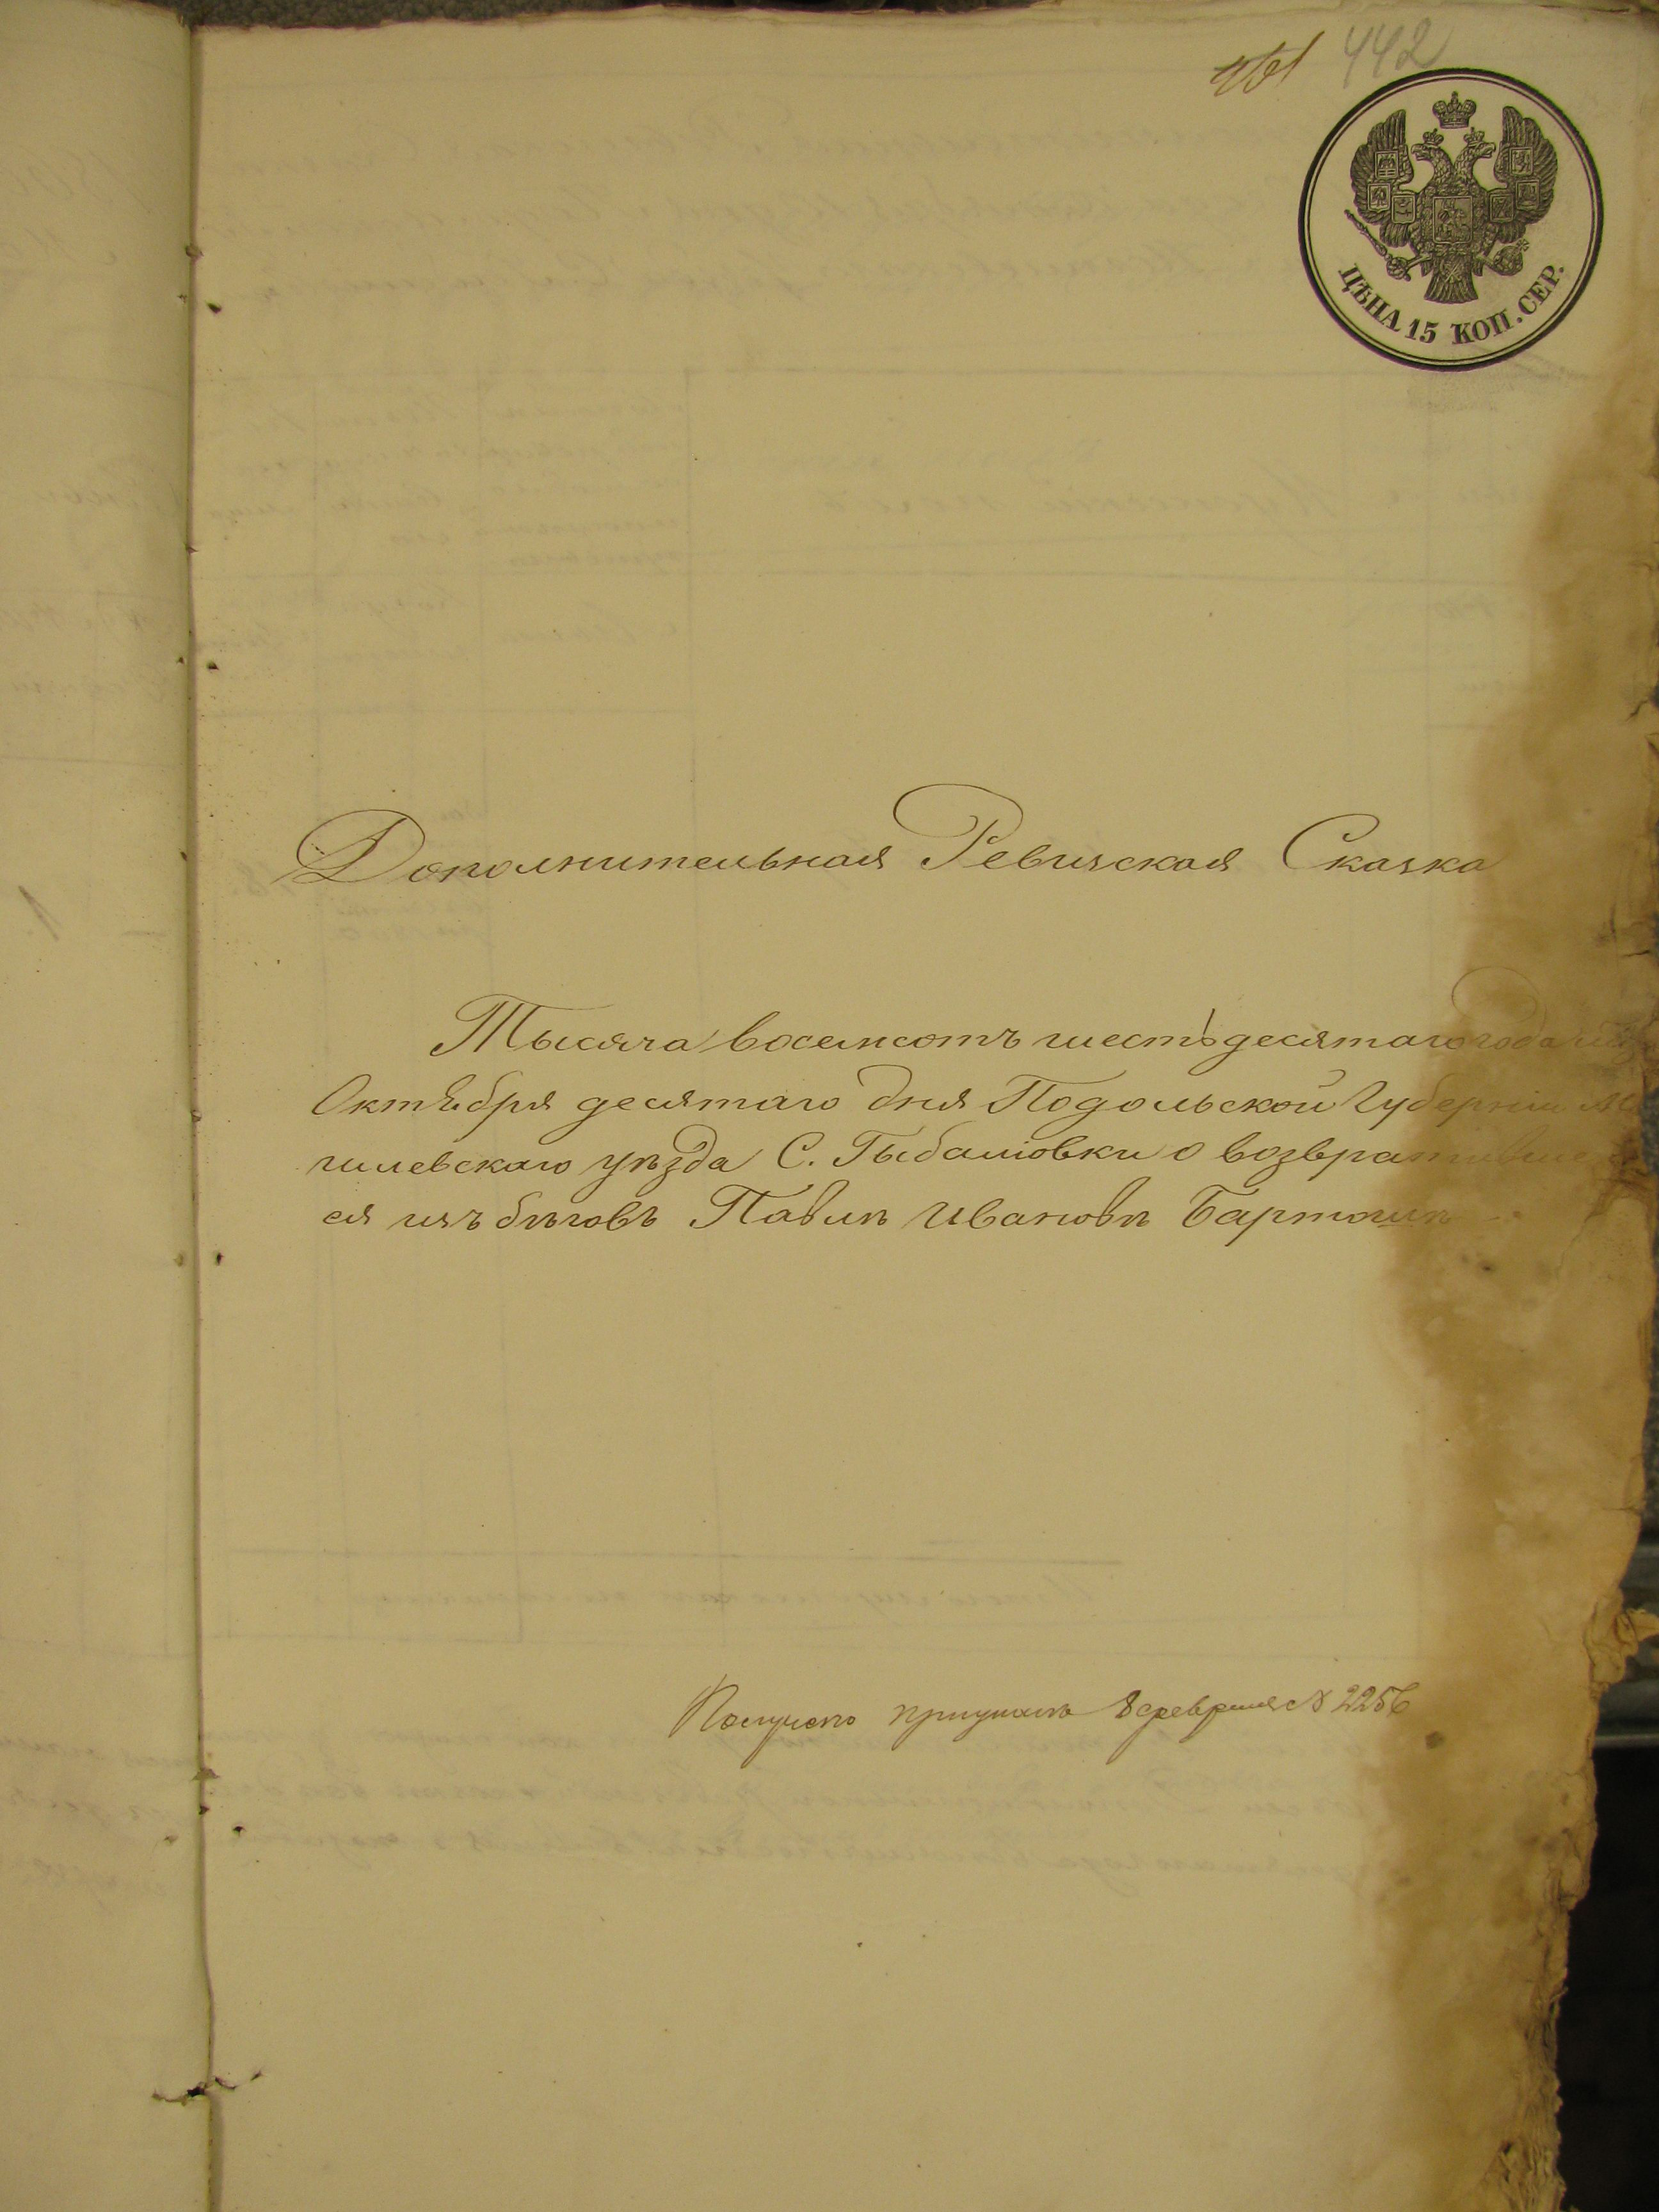 442
ЦѢНА 15 КОП. СЕР.
Дополнительная Ревизская Сказка
Тысяча восемсотъ шестьдесятаго года
Октября десятаго дня Подольской Губерніи Мо
гилевскаго уѣзда С. Гыбаловки о возвратившем
ся изъ бѣговъ Павлѣ Ивановѣ
Получено 8 февраля № 2256